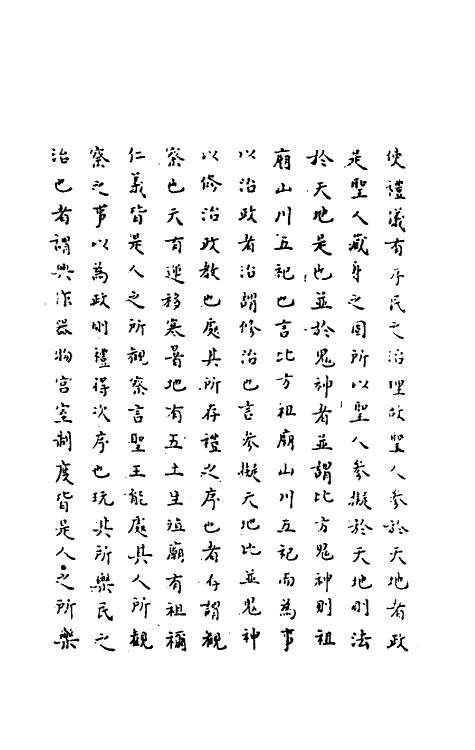 使禮儀有序民之治理故聖人参於天地者政
是聖人藏身之固所以聖人参擬於天地則法
於天地是也並於鬼神者並謂比方鬼神則祖
廟山川五祀也言比方祖廟山川五祀而為事
以治政者治謂修治也言参擬天地比並鬼神
以修治政教也處其所存禮之序也者存謂觀
察也天有運移寒暑地有五土生殖廟有祖禰
仁義皆是人之所觀察言聖王能處其人所觀
察之事以為政則禮得次序也玩其所樂民之
治也者謂興作器物宫室制度皆是人之所樂